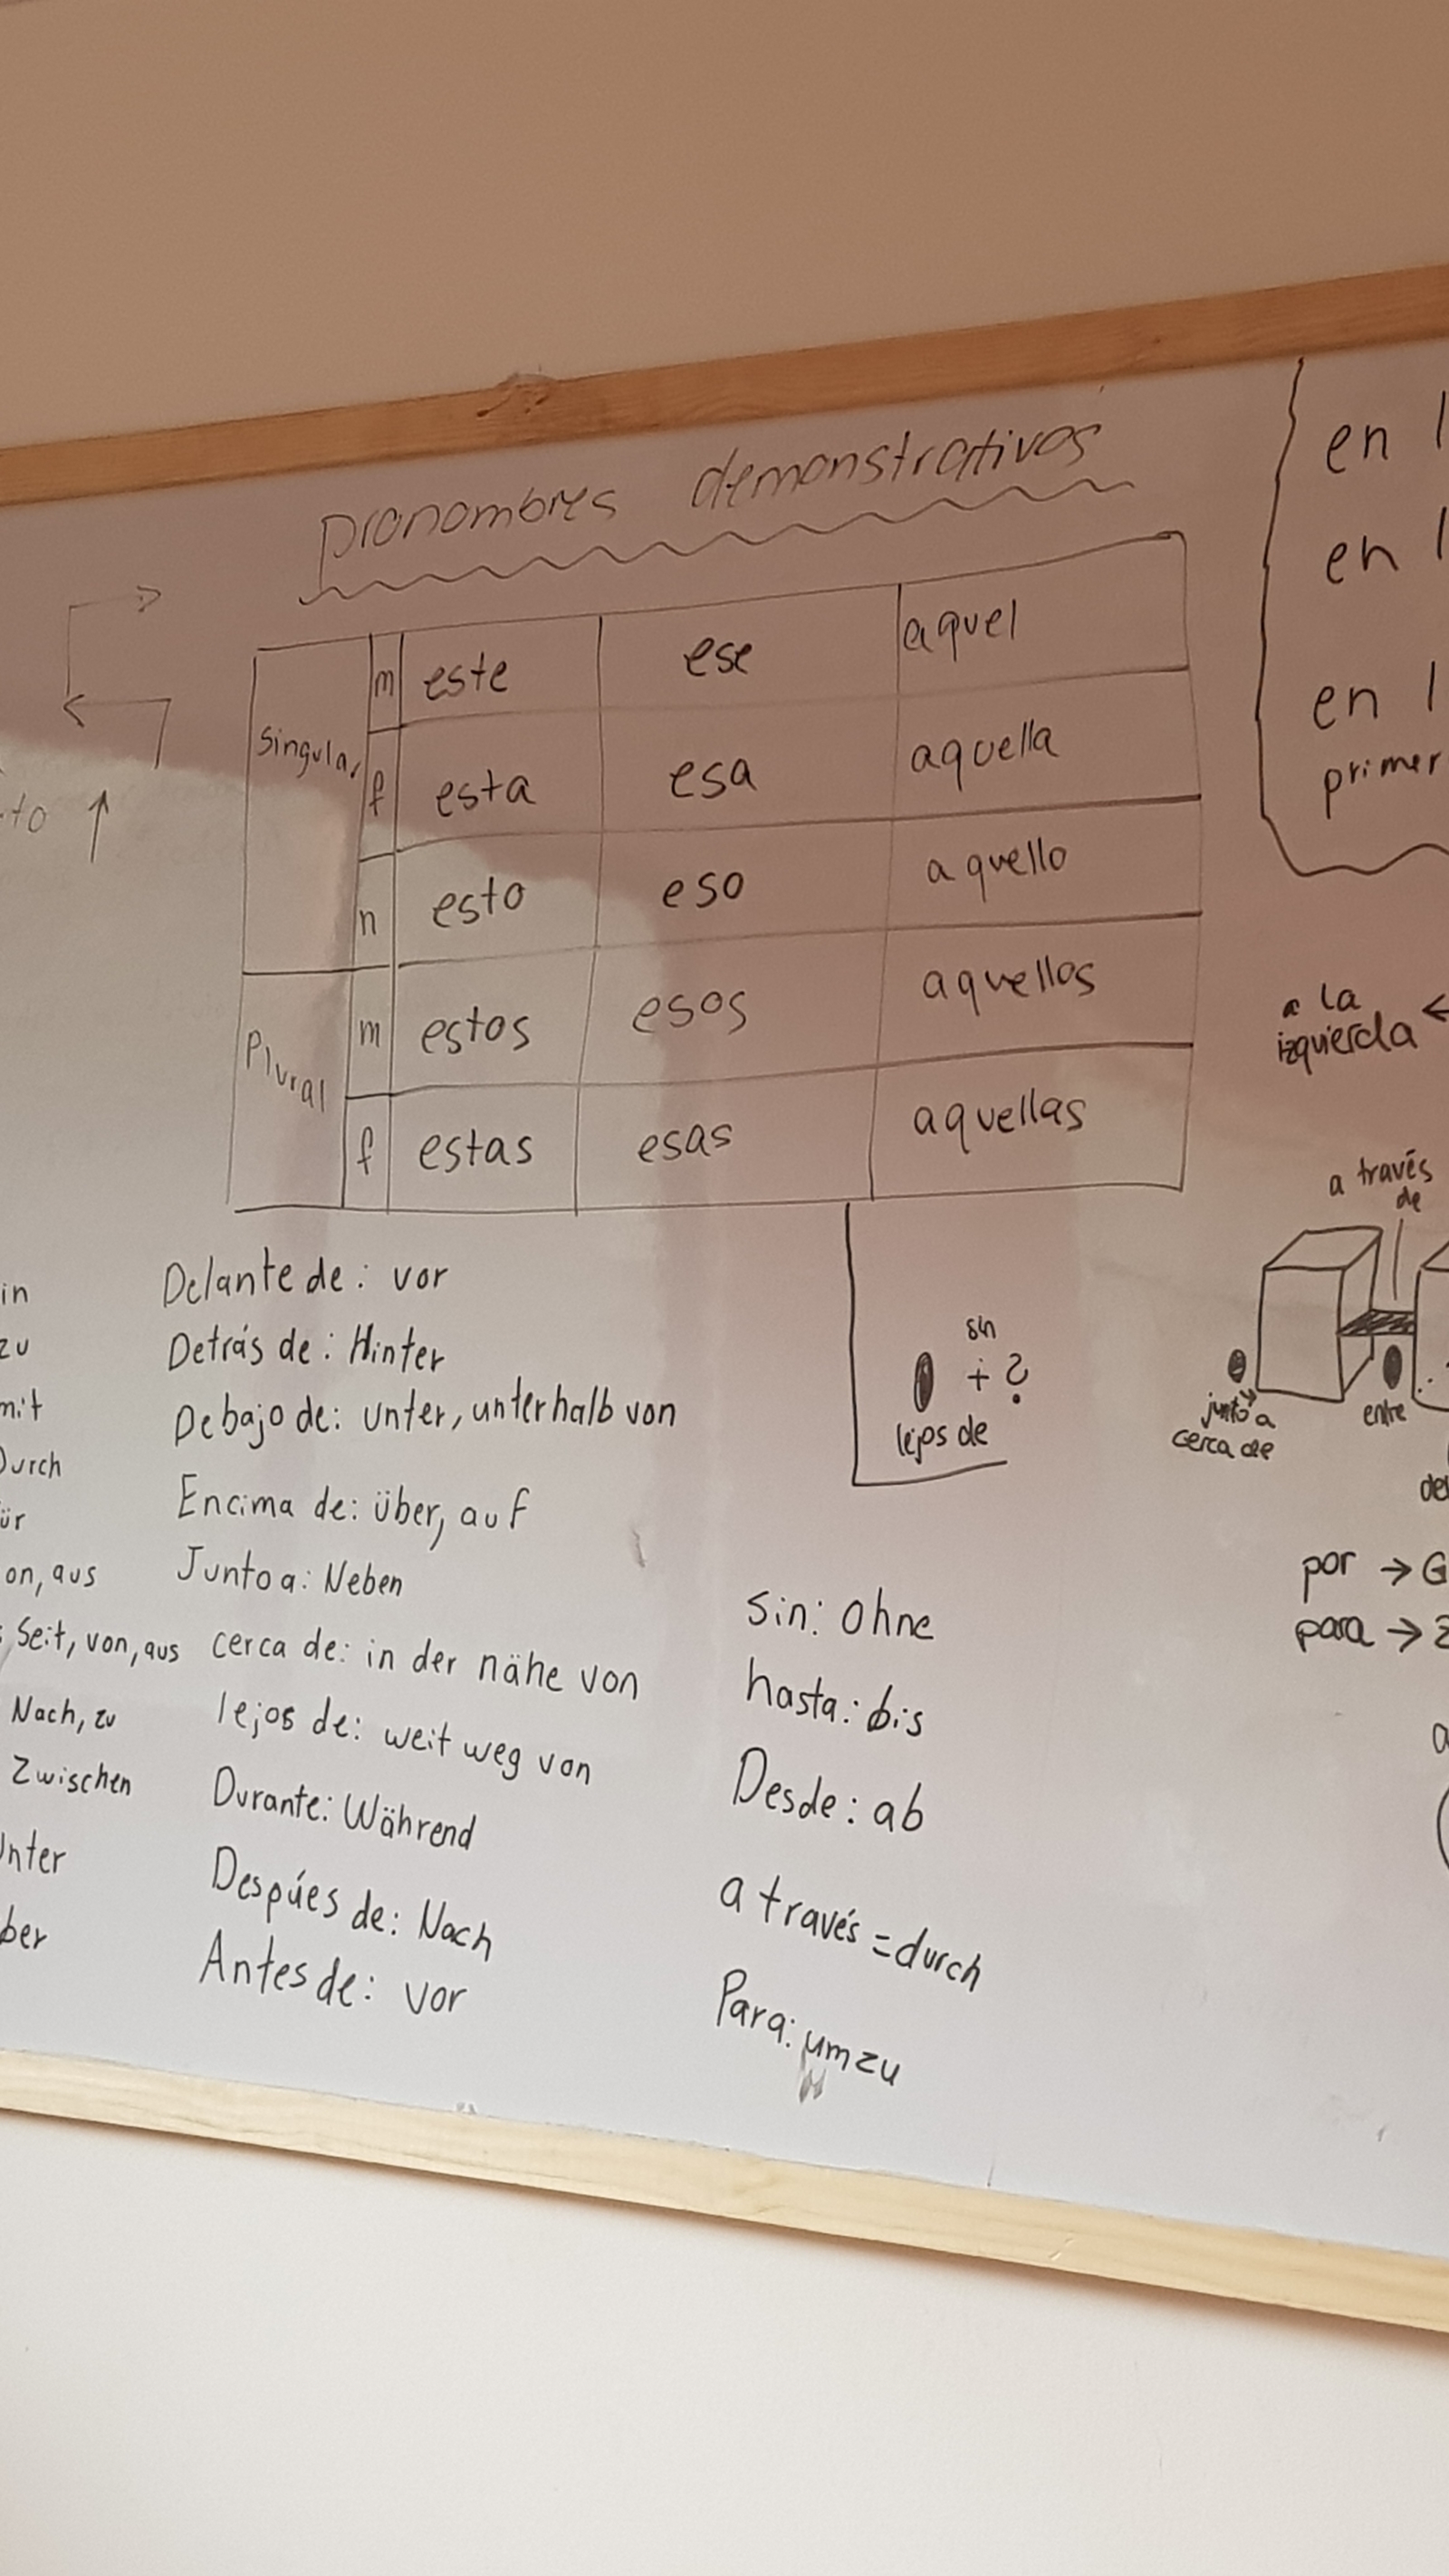 pronombres demonstrativos
Singular m este ese aquel
f esta esa aquella
n esto eso aquello
Plural m estos esos aquellos
f estas esas aquellas
to
en l
en l
en l
primer
a la
izquierda
a través
de
junto a
cerca de
entre
sin
+ ?
lejos de
por → G
para →
in
zu
mit
Durch
ür
on, aus
Seit, von, aus
Nach, zu
Zwischen
Unter
ber
Delante de: vor
Detrás de: Hinter
Debajo de: unter, unterhalb von
Encima de: über, auf
Junto a: Neben
cerca de: in der nähe von
lejos de: weit weg von
Durante: Während
Despúes de: Nach
Antes de: vor
Sin: Ohne
hasta: bis
Desde: ab
a través = durch
Para: um zu